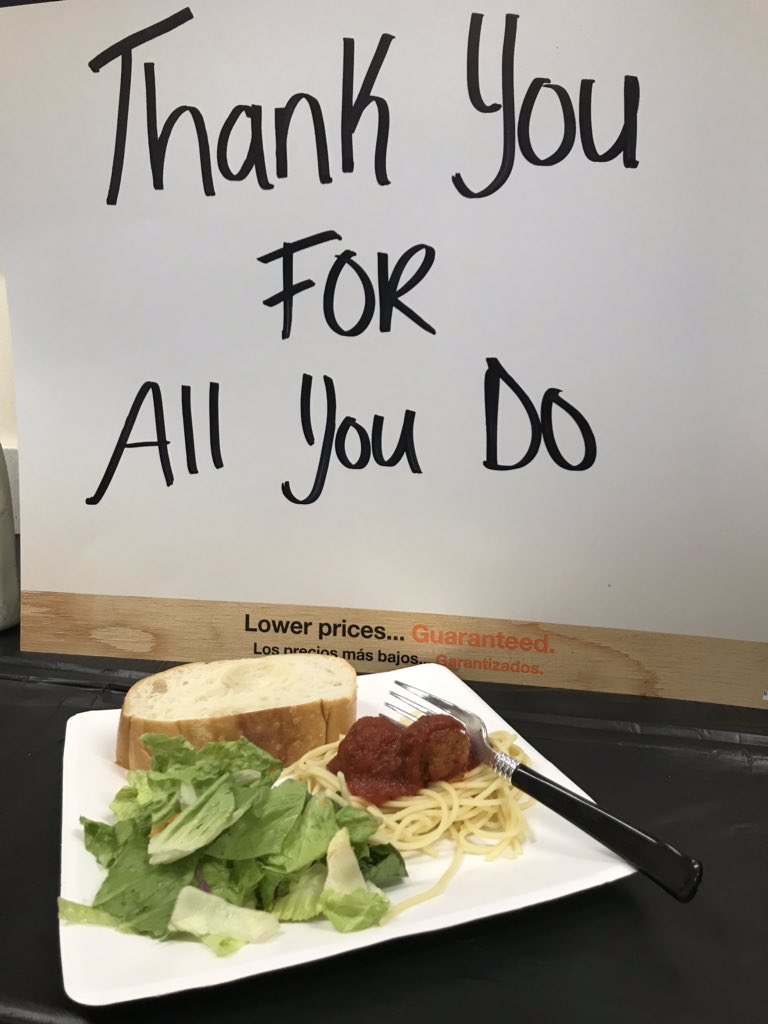 Thank You
FOR
All You Do
Lower prices... Guaranteed.
Los precios más bajos... Garantizados.